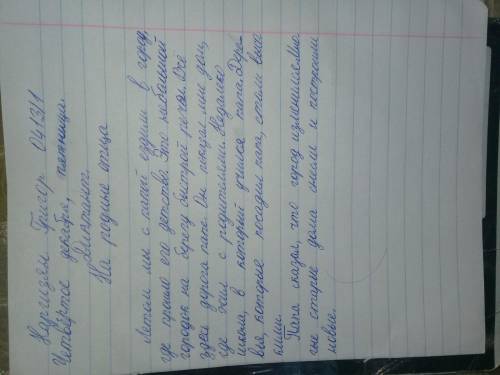 Наризян Григор 041311
Четвертое декабря, пятница.
Диктант.
На родине отца
Летом мы с папой ездили в город,
где прошло его детство. Это небольшой
городок на берегу быстрой речки. Всё
здесь дорого папе. Он показал мне дом,
где жил с родителями. Недалеко
школа, в которой учился папа. Дере-
вья, которые посадил папа, стали высо
кими.
Папа сказал, что город изменился. Мно
гие старые дома снесли и построили
новые.